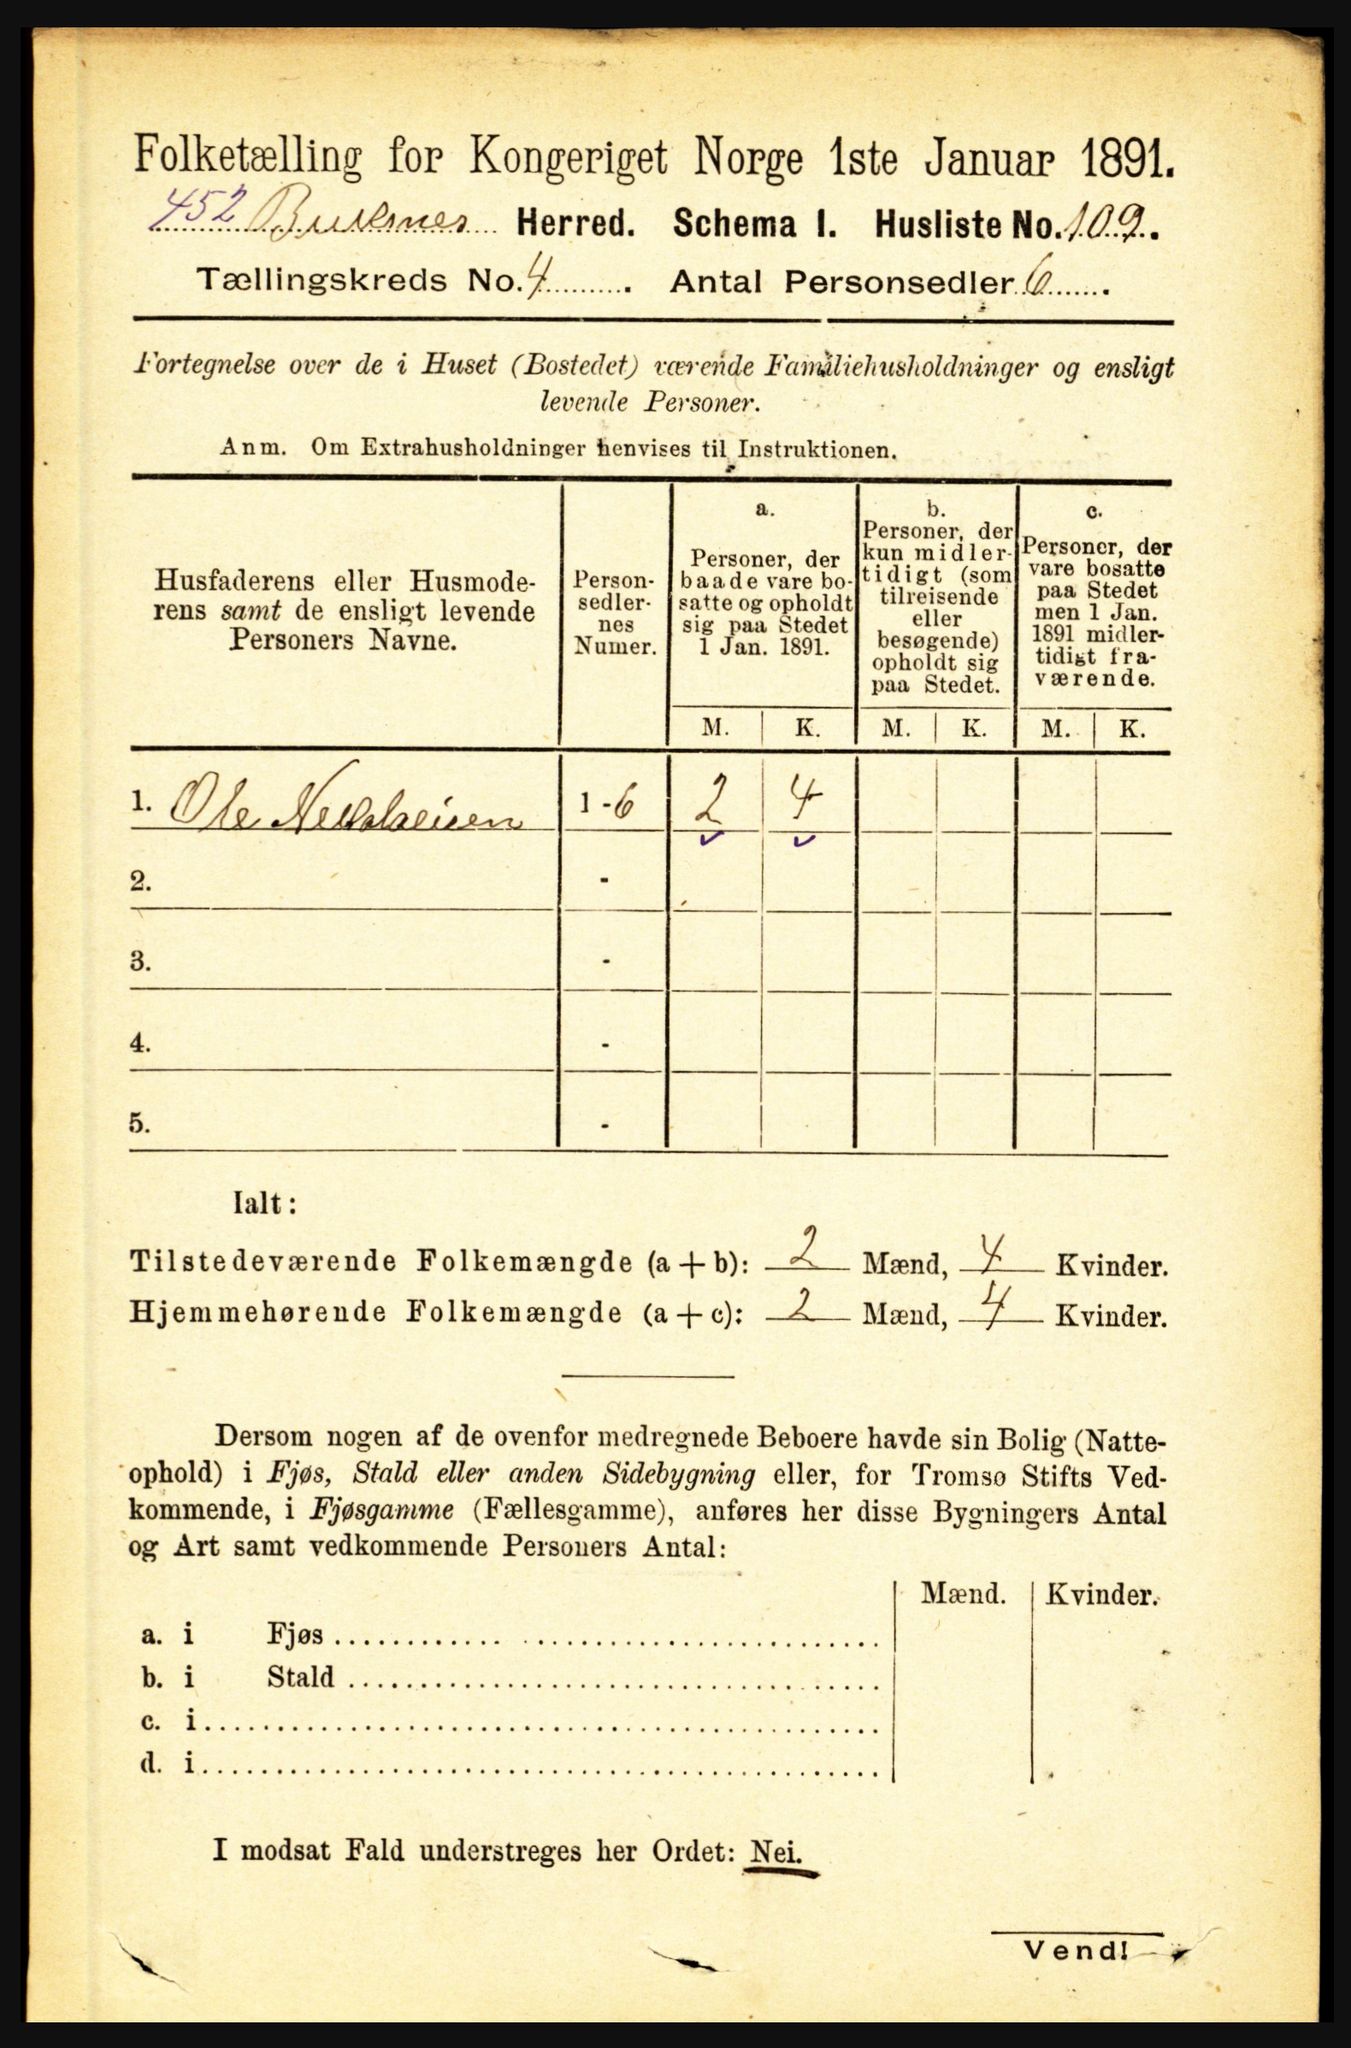 Folketælling for Kongeriget Norge 1ste Januar 1891.
452 Buksnes Herred. Schema I. Husliste No. 109.
Tællingskreds No. 4. Antal Personsedler 6.
Fortegnelse over de i Huset (Bostedet) værende Familiehusholdninger og ensligt
levende Personer.
Anm. Om Extrahusholdninger henvises til Instruktionen.
Husfaderens eller Husmode-
rens samt de ensligt levende
Personers Navne.
Person-
sedler-
nes
Numer.
a.
Personer, der
baade vare bo-
satte og opholdt
sig paa Stedet
1 Jan. 1891.
b.
Personer, der
kun midler-
tidigt (som
tilreisende
eller
besøgende)
opholdt sig
paa Stedet.
c.
Personer, der
vare bosatte
paa Stedet
men 1 Jan.
1891 midler-
tidigt fra-
værende.
M. K. M. K. M. K.
1. Ole 1 - 6 2 4
2. -
3. -
4. -
5. -
Ialt:
Tilstedeværende Folkemængde (a + b): 2 Mænd, 4 Kvinder.
Hjemmehørende Folkemængde (a + c): 2 Mænd, 4 Kvinder.
Dersom nogen af de ovenfor medregnede Beboere havde sin Bolig (Natte-
ophold) i Fjøs, Stald eller anden Sidebygning eller, for Tromsø Stifts Ved-
kommende, i Fjøsgamme (Fællesgamme), anføres her disse Bygningers Antal
og Art samt vedkommende Personers Antal:
Mænd. Kvinder.
a. i Fjøs
b. i Stald
c. i
d. i
I modsat Fald understreges her Ordet: Nei.
Vend!